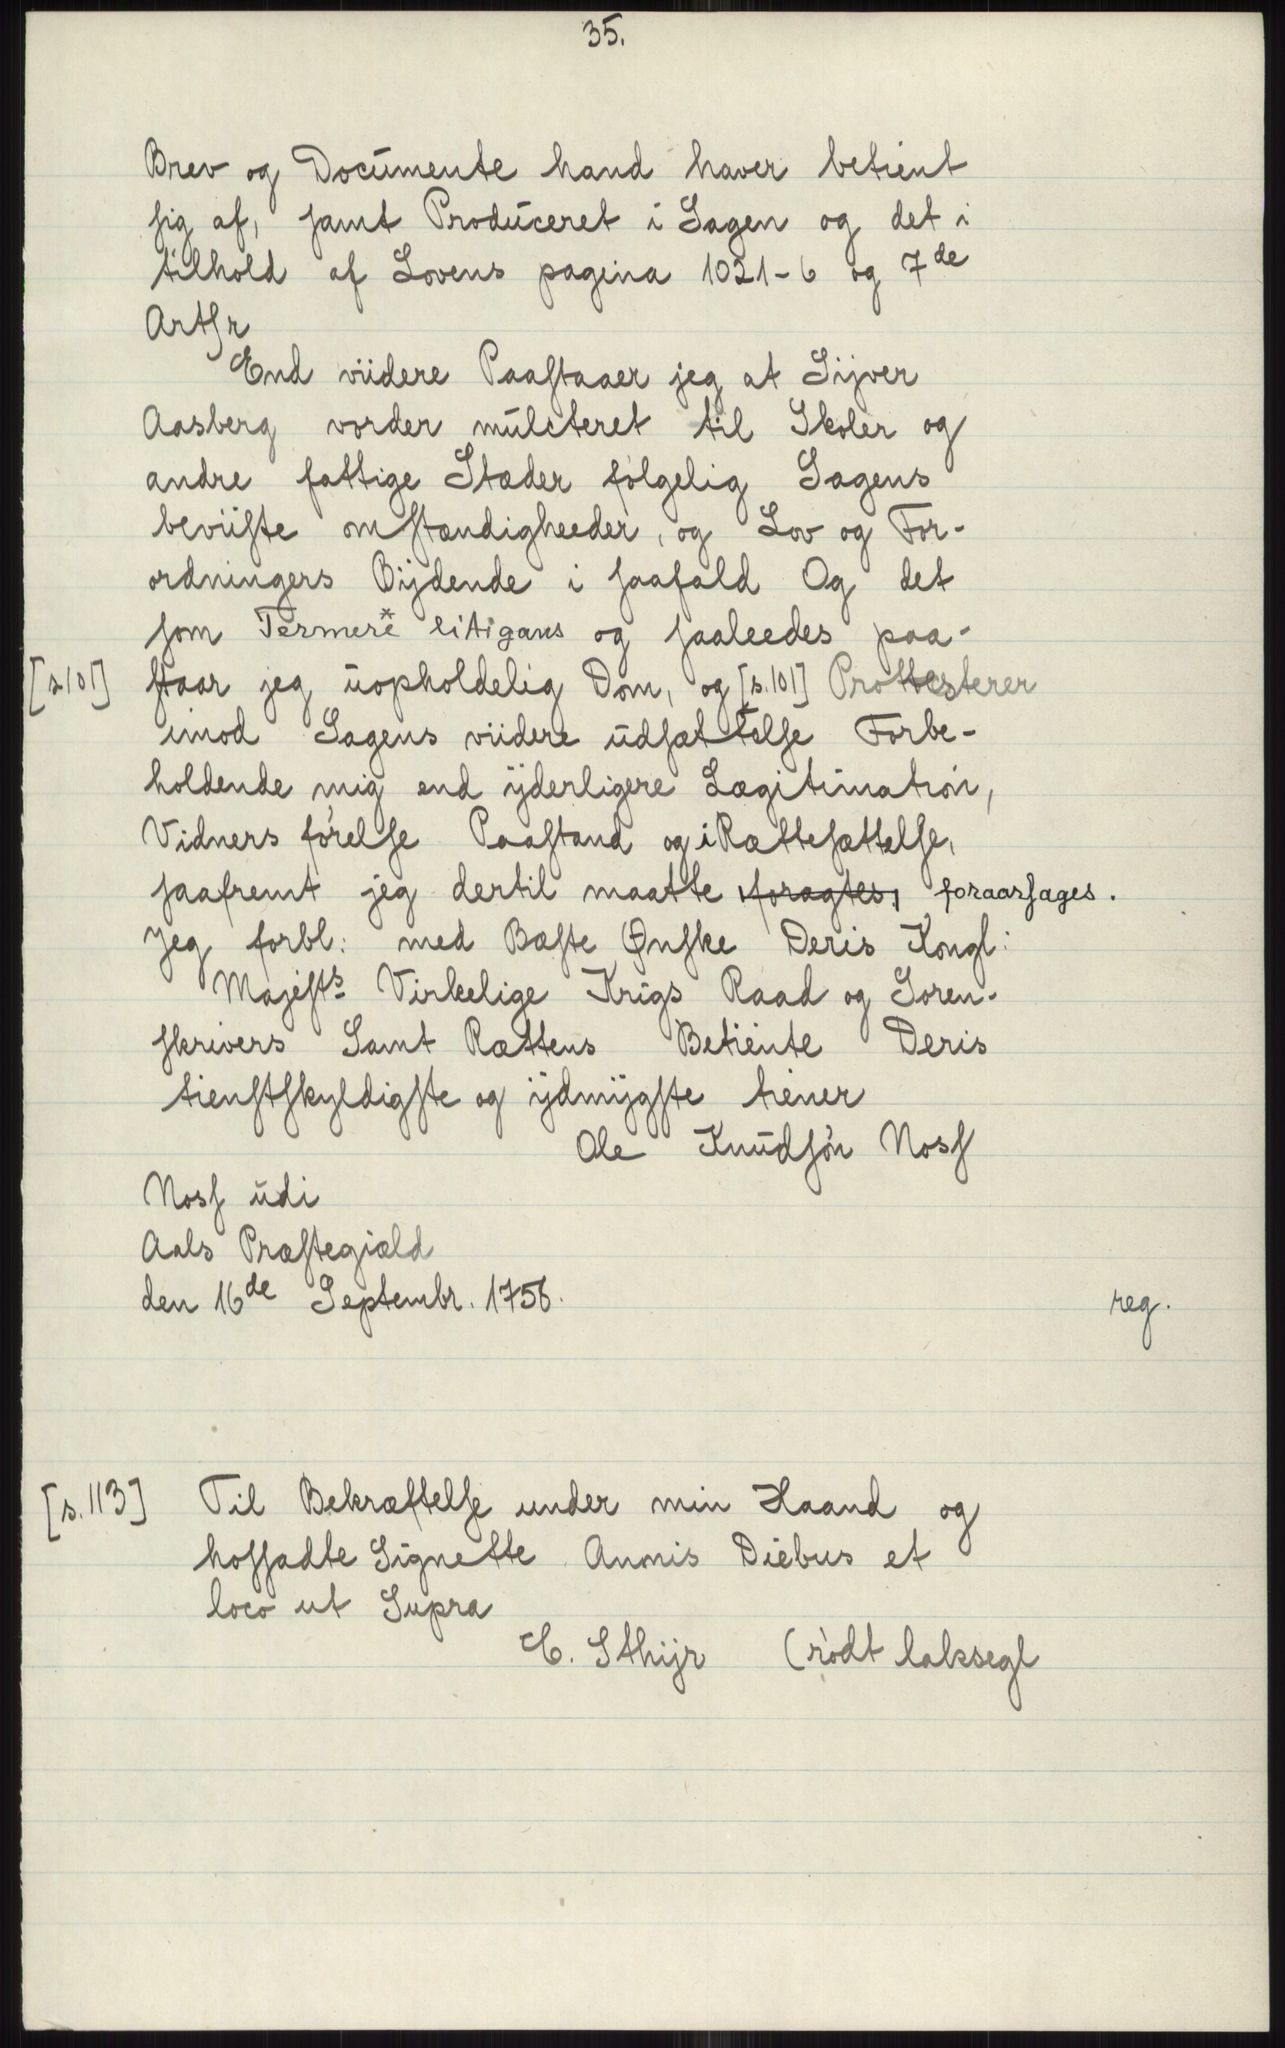 35.
Brev og Documente hand haver betient
sig af, samt Produceret i Sagen og det i
tilhold af Lovens pagina 1021-6 og 7de
Artlr
End viidere Paastaaer jeg at Sijver
Aasberg vorder mulcteret til Skoler og
andre fattige Stæder følgelig Sagens
beviiste omstændigheeder, og Lov og For-
ordningers Bijdende i saafald Og det
som Termerè* litigans og saaleedes paa-
[s 101] staar jeg uopholdelig Dom, og [s. 101] Prottesterer
imod Sagens viidere udsættelse Forbe-
holdende mig end ÿderligere Lægitimation,
Vidners førelse Paastand og iRættesættelse,
saafremt jeg dertil maatte foragtes, foraarsages.
Jeg forbl: med Bæste Ønske Deris Kongl:
Majests Virkelige Krigs Raad og Soren-
skrivers Samt Rættens Betiente Deris
tienstskyldigste og ÿdmÿgste tiener
Ole Knudsøn Noss
Noss udi
Aals Præstegiæld
den 16de Septembr. 1756.
reg.
[s. 113] Til Bekræftelse under min Haand og
hossadte Signette Annis Diebus et
loco ut Supra
E. Sthijr (rødt laksegl